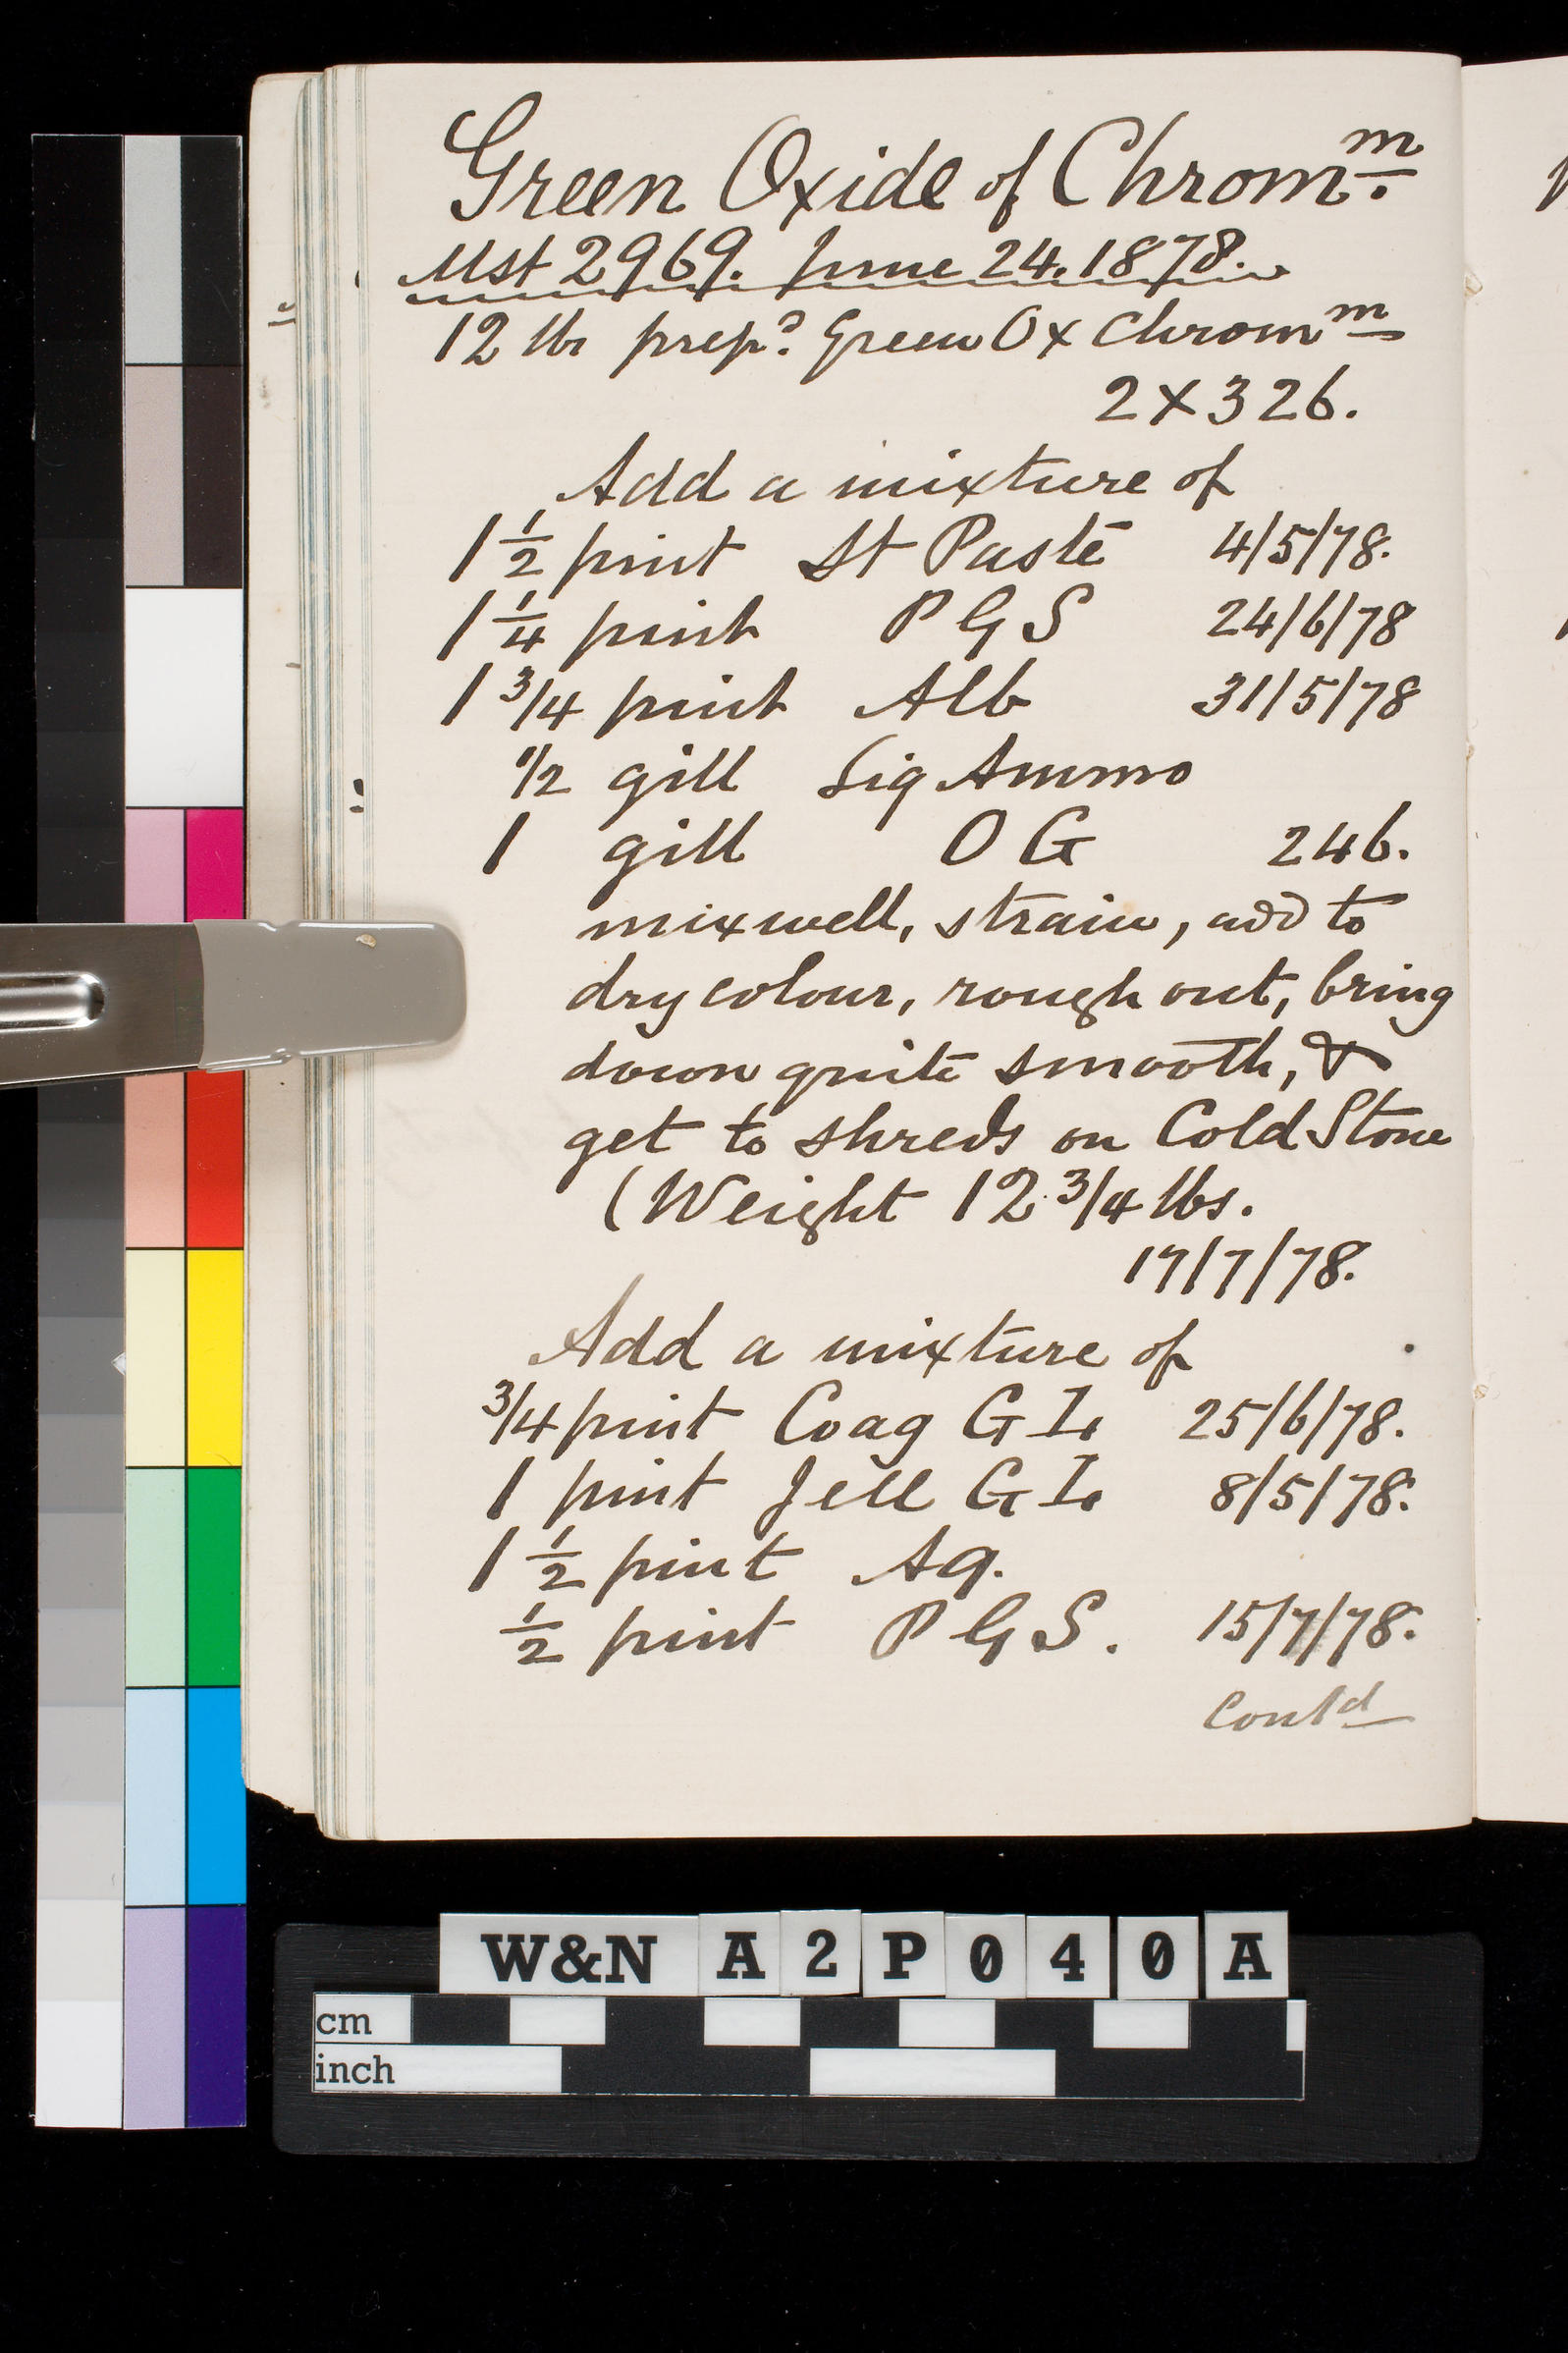 Green Oxide of Chromm.
Mst 2969. June 24. 1878.
12 lbs prepd. Green Ox Chromm
2X326.
Add a mixture of
1 1/2 pint St Paste 4/5/78.
1 1/4 pint P G S 24/6/78
1 3/4 pint Alb 31/5/78
1/2 gill Liq Ammo
1 gill O G 246.
mix well, strain, add to
dry colour, rough out, bring
down quite smooth, &
get to shreds on Cold Stone
(Weight 12 3/4 lbs.
17/7/78.
Add a mixture of
3/4 pint Coag G I. 25/6/78.
1 pint Jell G I. 8/5/78.
1 1/2 pint Aq.
1/2 pint P G S. 15/7/78.
Contd
W&N A2P040A
cm
inch